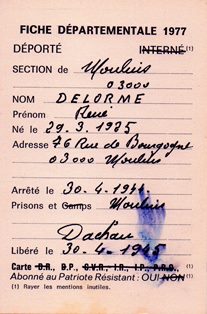 FICHE DÉPARTEMENTALE 1977
DÉPORTÉ INTERNÉ (1)
SECTION de Moulins
03000
NOM DELORME
Prénom René
Né le 29.3.1925
Adresse 76 Rue de Bourgogne
03000 Moulins
Arrêté le 30.4.1944
Prisons et Camps Moulins
Dachau
Libéré le 30.4.1945
Carte D.R., D.P., C.V.R., I.R., I.P., P.R.O., (1)
Abonné au Patriote Résistant : OUI NON (1)
(1) Rayer les mentions inutiles.